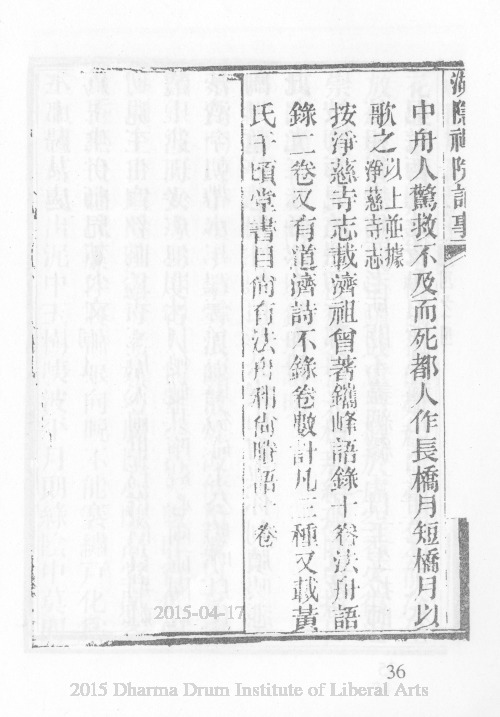 湖隱禪院記事
中舟人驚救不及而死都人作長橋月短橋月以
歌之以上並據
淨慈寺志
按淨慈寺志載濟祖曾著鑴峰語錄十卷法舟語
錄二卷又有道濟詩不錄卷數計凡三種又載黃
氏千頃堂書目尚有法舟和尚賸語一卷
2015-04-17
36
2015 Dharma Drum Institute of Liberal Arts